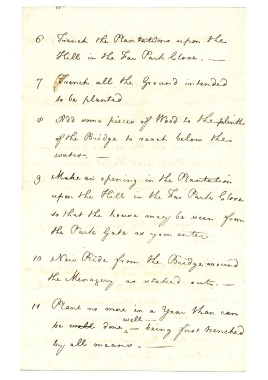 6 Trench the Plantations upon the
Hill in the Far Park Close. —
7 Trench all the Ground intended
to be planted
8 Add some pieces of Wood to the plinth
of the Bridge to reach below the
water. —
9 Make an opening in the Plantation
upon the Hill in the Far Park Close
so that the house may be seen from
the Park Gate as you enter
10 New Ride from the Bridge around
the Menagery as staked out. —
11 Plant no more in a Year than can
well
be well done, — being first trenched
by all means. —